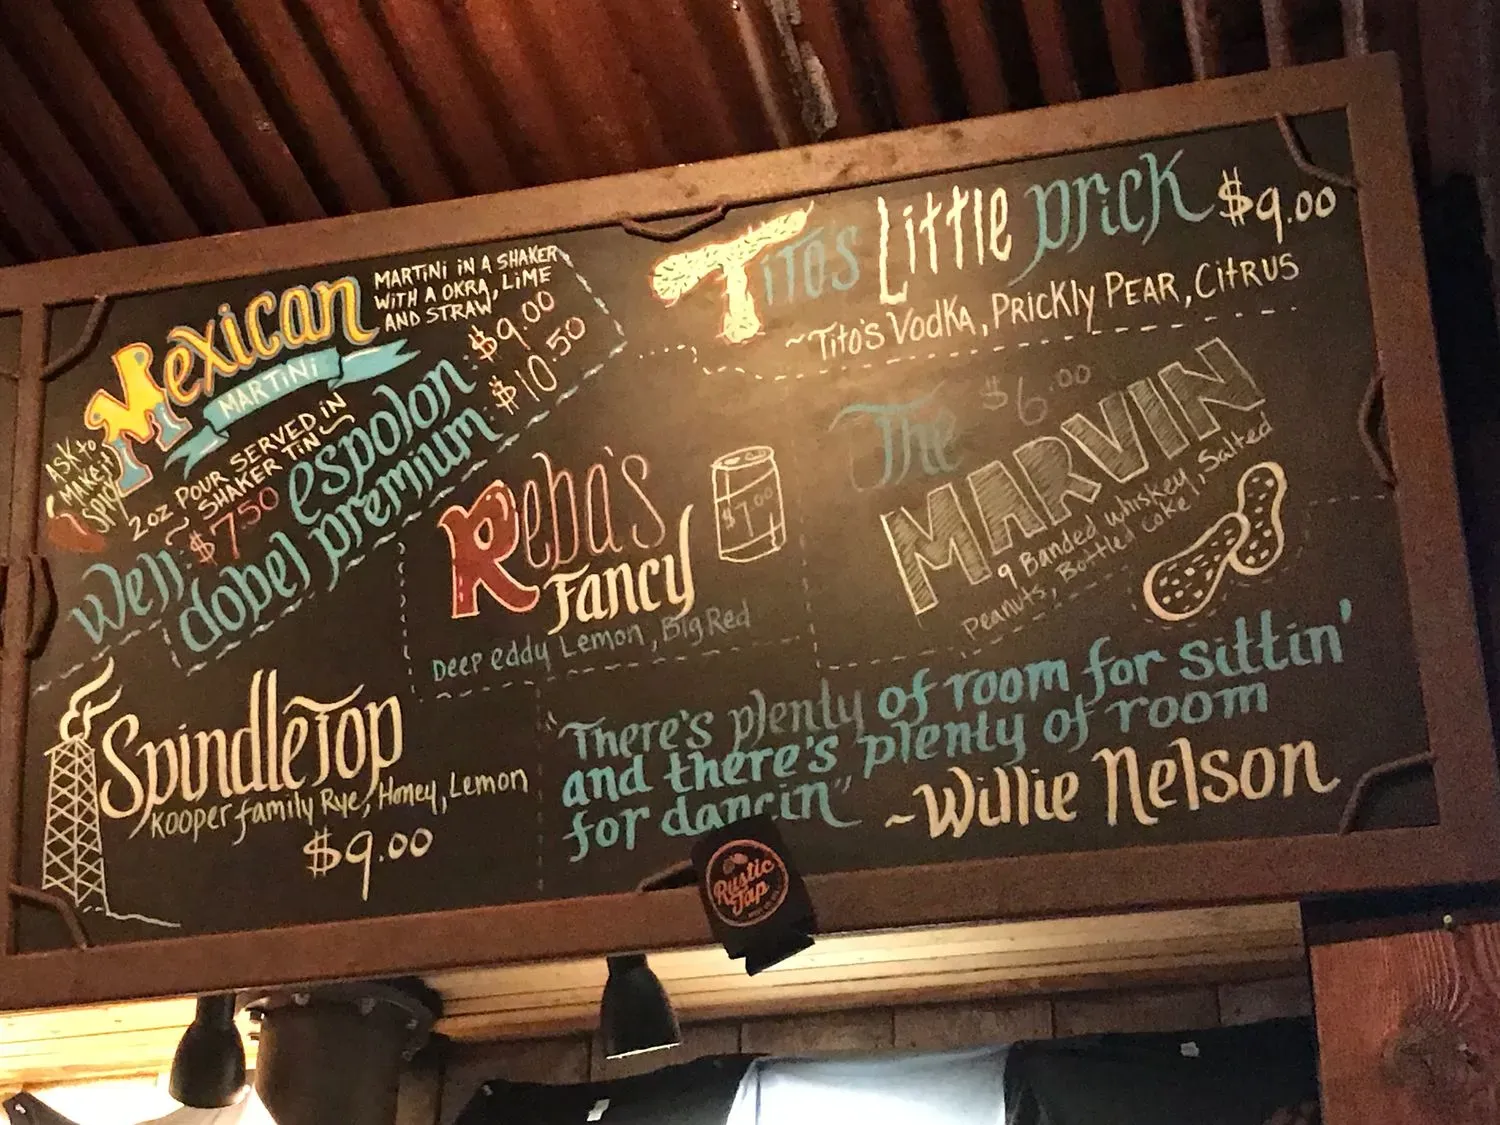 Mexican
MARTINI
MARTINI IN A SHAKER
WITH A OKRA, LIME
AND STRAW
ASK to
MAKE it
SPICY
2oz POUR SERVED IN
~ SHAKER TIN ~
Well: $7.50
espolon: $9.00
dobel premium: $10.50
Tito's Little Prick $9.00
~Tito's Vodka, Prickly Pear, Citrus
Reba's
Fancy
$7.00
Deep eddy Lemon, Big Red
The $6.00
MARVIN
9 Banded Whiskey, Salted
Peanuts, Bottled Coke
SpindleTop
Kooper family Rye, Honey, Lemon
$9.00
"There's plenty of room for sittin'
and there's plenty of room
for dancin"
~Willie Nelson
Rustic
Tap